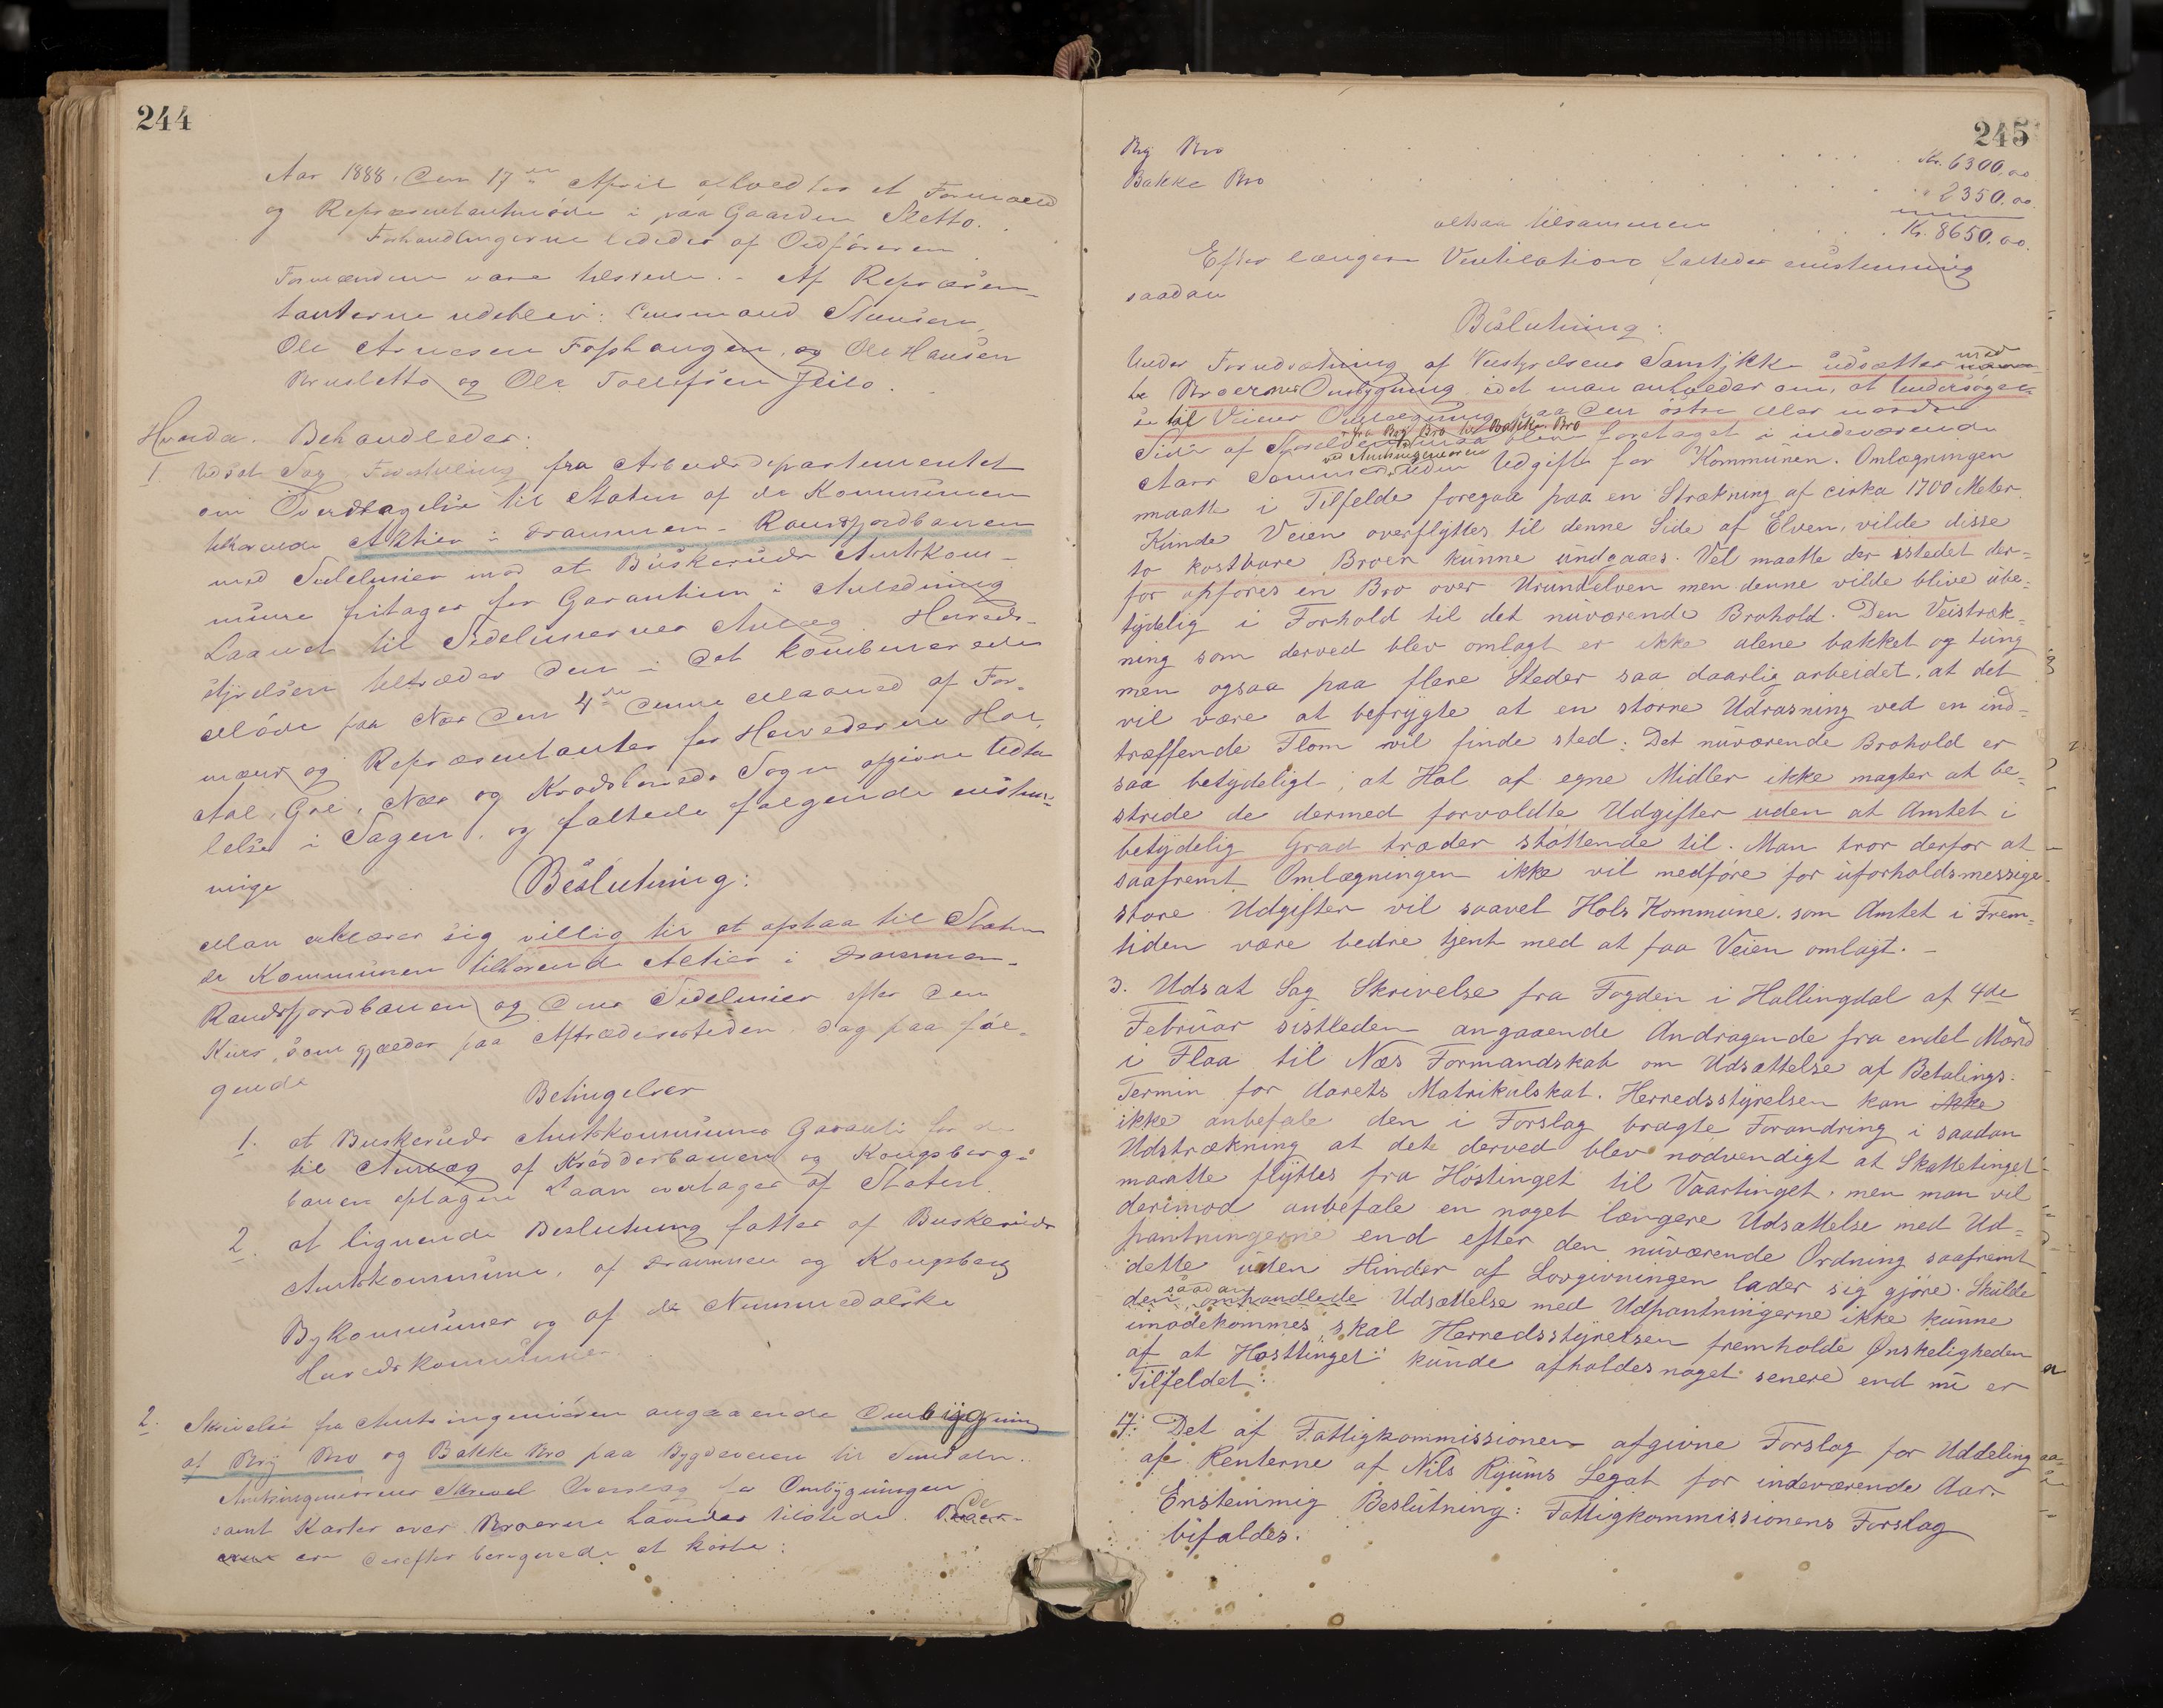 244
Aar 1888, den 17de April afholdtes et Formænd
og Repræsentantmøde i paa Gaarden Sletto.
Forhandlingerne lededes af Ordføreren
Formændene vare tilstede. - Af Repræsen-
tanterne udeblev: Lensmand Stensen,
Ole Arnesen og Ole Hansen
Brusletto og Ole Tollefsen Jeilo.
Hvorda. Behandledes:
1. Udsat Sag Forestilling fra Arbeidsdepartementet
om Overdragelse til Staten af de Kommunen
tilhørende Aktier i Drammen-Randsfjordbanen
med Sidelinier mod at Buskeruds Amtskom-
mune fritages for Garantien i Anledning
Laanet til Sidelinierners Anlæg. Herreds-
styrelsen tiltræder den i det kombinerede
Møde paa Næs den 4de denne Maaned af For-
mænd og Repræsentanter for Herrederne Hol,
Aal, Gol, Næs og Krødsherreds Sogn afgivne Udta-
lelse i Sagen, og fattede følgende enstem-
mige
Beslutning:
Man erklærer sig villig til at afstaa til Staten
de Kommunen tilhørende Aktier i Drammen-
Randsfjordbanen og dens Sidelinier efter den
Kurs, som gjælder paa Aftrædelsestiden dog paa føl-
gende
Betingelser
1. at Buskeruds Amtskommunes Garanti for de
til Anlæg af Krødderbanen og Kongsberg-
banen optagne Laan overtages af Staten.
2. at lignende Beslutning fattes af Buskeruds
Amtskommune, af Drammen og Kongsberg
Bykommuner og af de Nummedalske
Herredskommuner.
2. Skrivelse fra Amtsingeniøren angaaende Ombygning
af Bry Bro og Bakke Bro paa Bygdeveien til
Amtsingeniørens Skrivel Overslag for Ombygningen
samt Karter over Broerne havdes tilstede. De
er derefter beregnede at koste:
245
Bry Bro . . . . . . . . Kr. 6300,00
Bakke Bro . . . . . . . . " 2350,00
altsaa tilsammen . . . . Kr. 8650,00.
Efter længere Ventilation fattedes enstemmig
saadan
Beslutning:
Under Forudsætning af Veistyrelsens Samtykke udsættes med
Broernes Ombygning idet man anholder om, at Undersøgel-
se til Veiens Omlægning paa den østre eller nordre
fra Bry Bro til Bakke Bro
Side af maa blive foretaget i indeværende
ved Amtsingeniøren
Aars Sommer uden Udgift for Kommunen. Omlægningen
maatte i Tilfelde foregaa paa en Strækning af cirka 1700 Meter.
Kunde Veien overflyttes til denne Side af Elven, vilde disse
to kostbare Broer kunne undgaaes. Vel maatte der istedet der-
for opføres en Bro over Urundelven men denne vilde blive ube-
tydelig i Forhold til det nuværende Brohold. Den Veistræk-
ning som derved blev omlagt er ikke alene bakket og tung
men ogsaa paa flere Steder saa daarlig arbeidet, at det
vil være at befrygte at en større Udrasning ved en ind-
træffende Flom vil finde sted: Det nuværende Brohold er
saa betydeligt, at Hol af egne Midler ikke magter at be-
stride de dermed forvoldte Udgifter uden at Amtet i
betydelig Grad træder støttende til. Man tror derfor at
saafremt Omlægningen ikke vil medføre for uforholdsmessige
store Udgifter vil saavel Hols Kommune som Amtet i Frem-
tiden være bedre tjent med at faa Veien omlagt. -
3. Udsat Sag Skrivelse fra Fogden i Hallingdal af 4de
Februar sistleden angaaende Andragende fra endel Mænd
i Flaa til Næs Formandskab om Udsættelse af Betalings-
Termin for Aarets Matrikulskat. Herredsstyrelsen kan ikke
ikke anbefale den i Forslag bragte Forandring i saadan
Udstrækning at det derved blev nødvendigt at Skattetinget
maatte flyttes fra Høstinget til Vaartinget, men man vil
derimod anbefale en noget længere Udsættelse med Ud-
pantningerne end efter den nuværende Ordning saafremt
dette uden Hinder af Lovgivningen lader sig gjøre. Skulde
saadan
den omhandlede Udsættelse med Udpantningerne ikke kunne
imødekommes, skal Herredsstyrelsen fremholde Ønskeligheden
af at Høsttinget kunde afholdes noget senere end nu er
Tilfeldet.
4. Det af Fattigkommissionen afgivne Forslag for Uddeling
af Renterne af Nils Ryums Legat for indeværende Aar.
Enstemmig Beslutning: Fattigkommissionens Forslag
bifaldes.